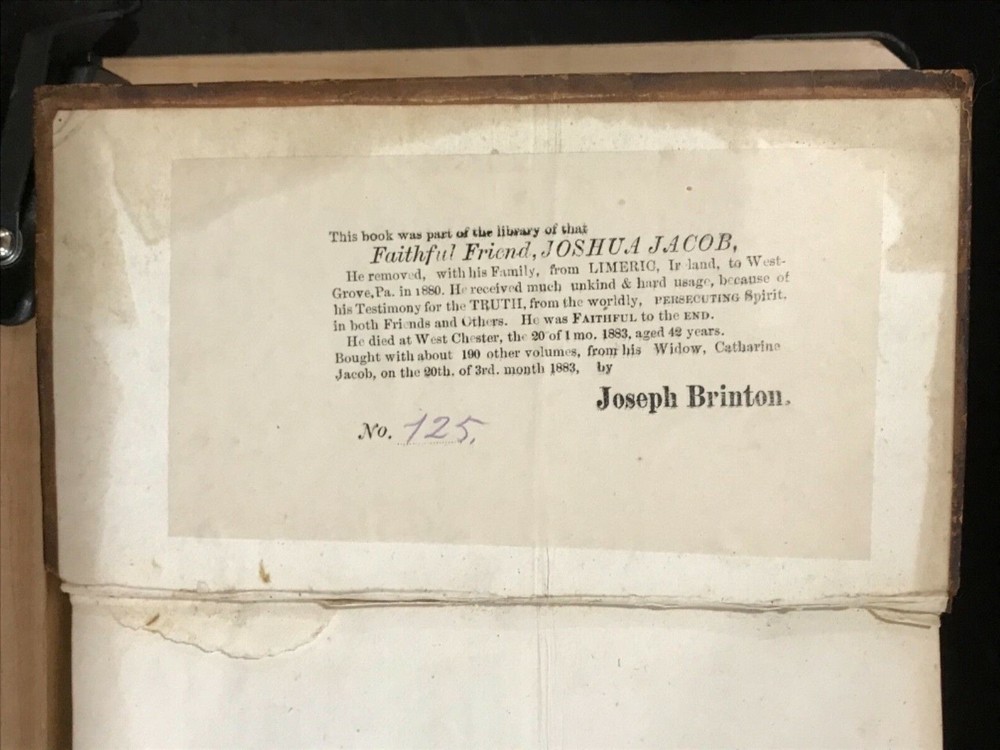 This book was part of the library of that
Faithful Friend, JOSHUA JACOB,
He removed, with his Family, from LIMERIC, Ir land, to West-
Grove, Pa. in 1880. He received much unkind & hard usage, because of
his Testimony for the TRUTH, from the worldly, PERSECUTING Spirit,
in both Friends and Others. He was FAITHFUL to the END.
He died at West Chester, the 20 of 1 mo. 1883, aged 42 years.
Bought with about 190 other volumes, from his Widow, Catharine
Jacob, on the 20th. of 3rd. month 1883, by
Joseph Brinton.
No. 125.